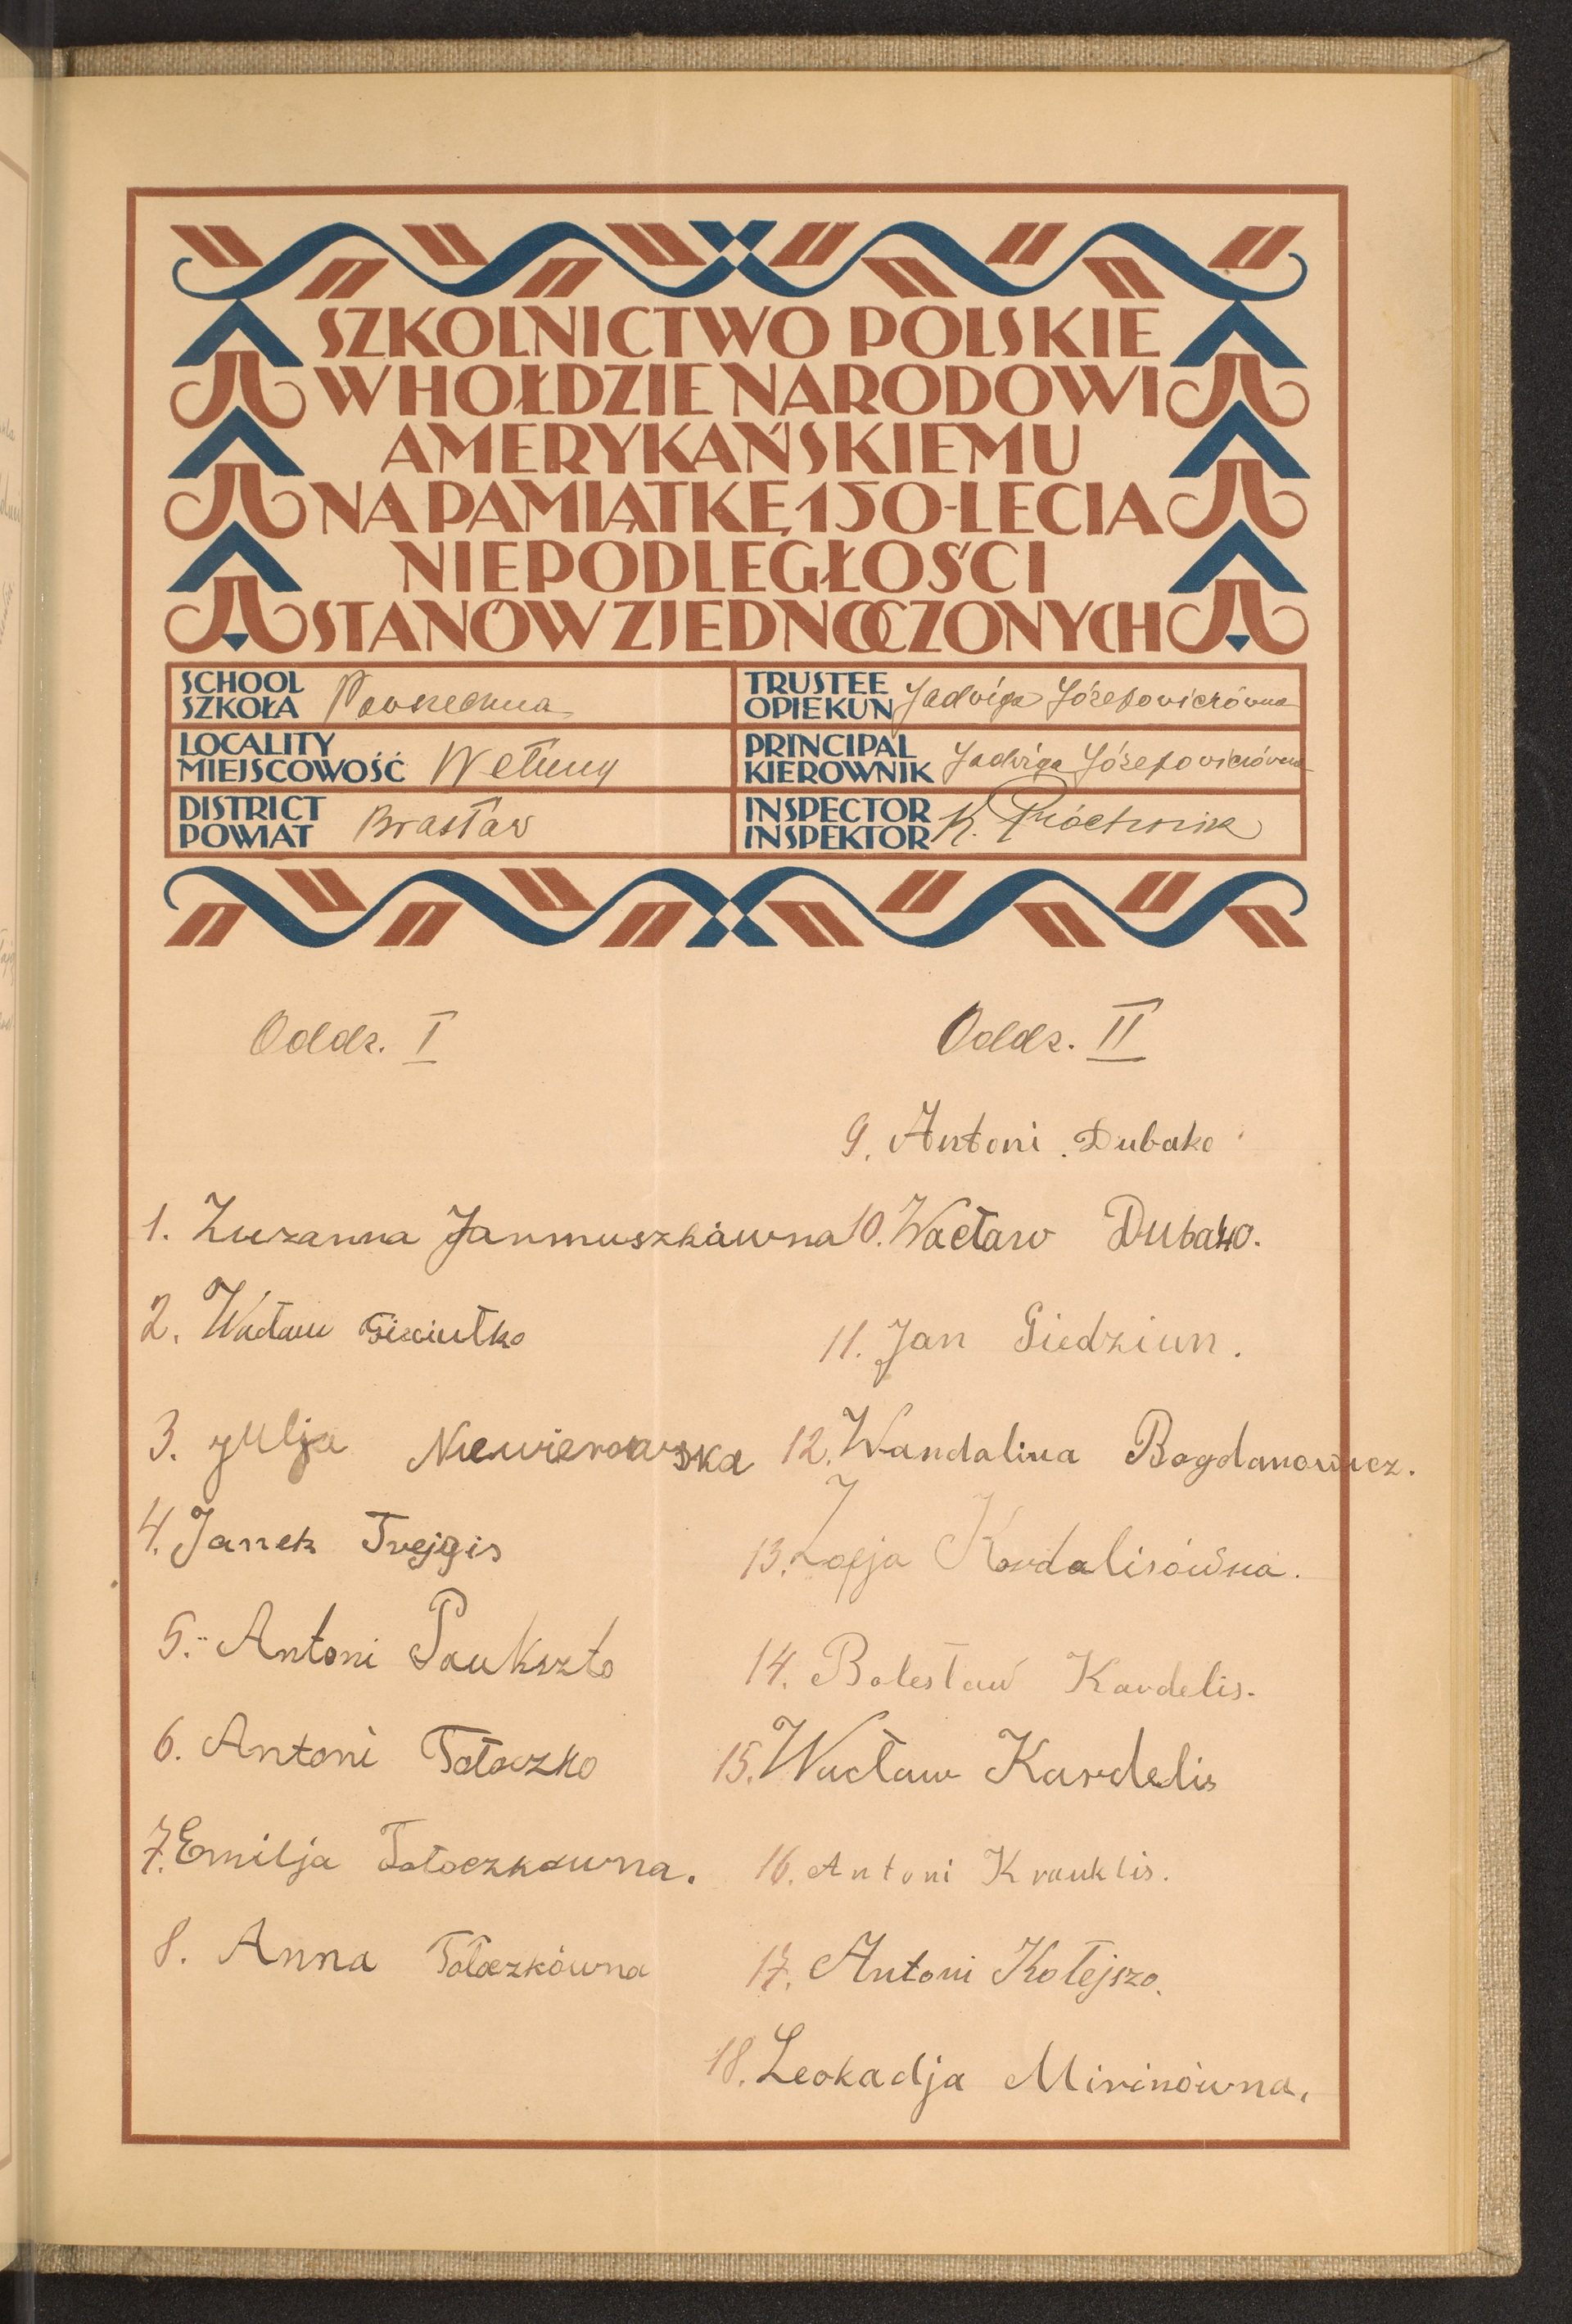 SZKOLNICTWO POLSKIE
W HOŁDZIE NARODOWI
AMERYKAŃSKIEMU
NA PAMIĄTKĘ 150-LECIA
NIEPODLEGŁOŚCI
STANÓW ZJEDNOCZONYCH
SCHOOL
SZKOŁA Powszechna
TRUSTEE
OPIEKUN Jadwiga Józefowiczówna
LOCALITY
MIEJSCOWOŚĆ Wełuny
PRINCIPAL
KIEROWNIK Jadwiga Józefowiczówna
DISTRICT
POWIAT Brasław
INSPECTOR
INSPEKTOR K. Próchnik
Oddz. I
1. Zuzanna Janmuszkawna
2. Wacław
3. Julja Niewierowska
4. Janek Trejgis
5. Antoni Paukszto
6. Antoni Tołoczko
7. Emilja Tołoczkawna.
8. Anna Tołoczkówna
Oddz. II
9. Antoni Dubako
10. Wacław Dubako.
11. Jan Giedziun.
12. Wandalina Bogdanowicz.
13. Zofja Kardalisówna.
14. Bolesław Kardelis.
15. Wacław Kardelis
16. Antoni Krauklis.
17. Antoni Kołejszo.
18. Leokadja Mirinówna.